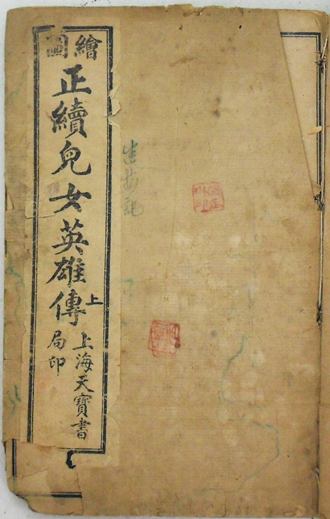 繪圖
正續兒女英雄傳
上
上海天寶書
局印